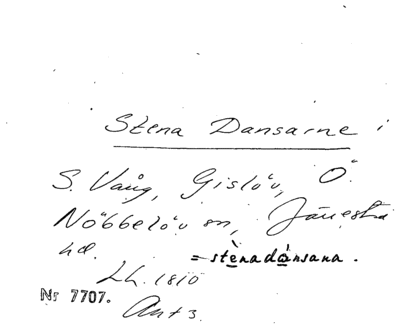 Stena Dansarne i
S. Vång, Gislöv, Ö.
Nöbbelöv sn, Järrestad
hd. = stènadánsana.
Lh. 1810
Nr 7707.
Ant 3.